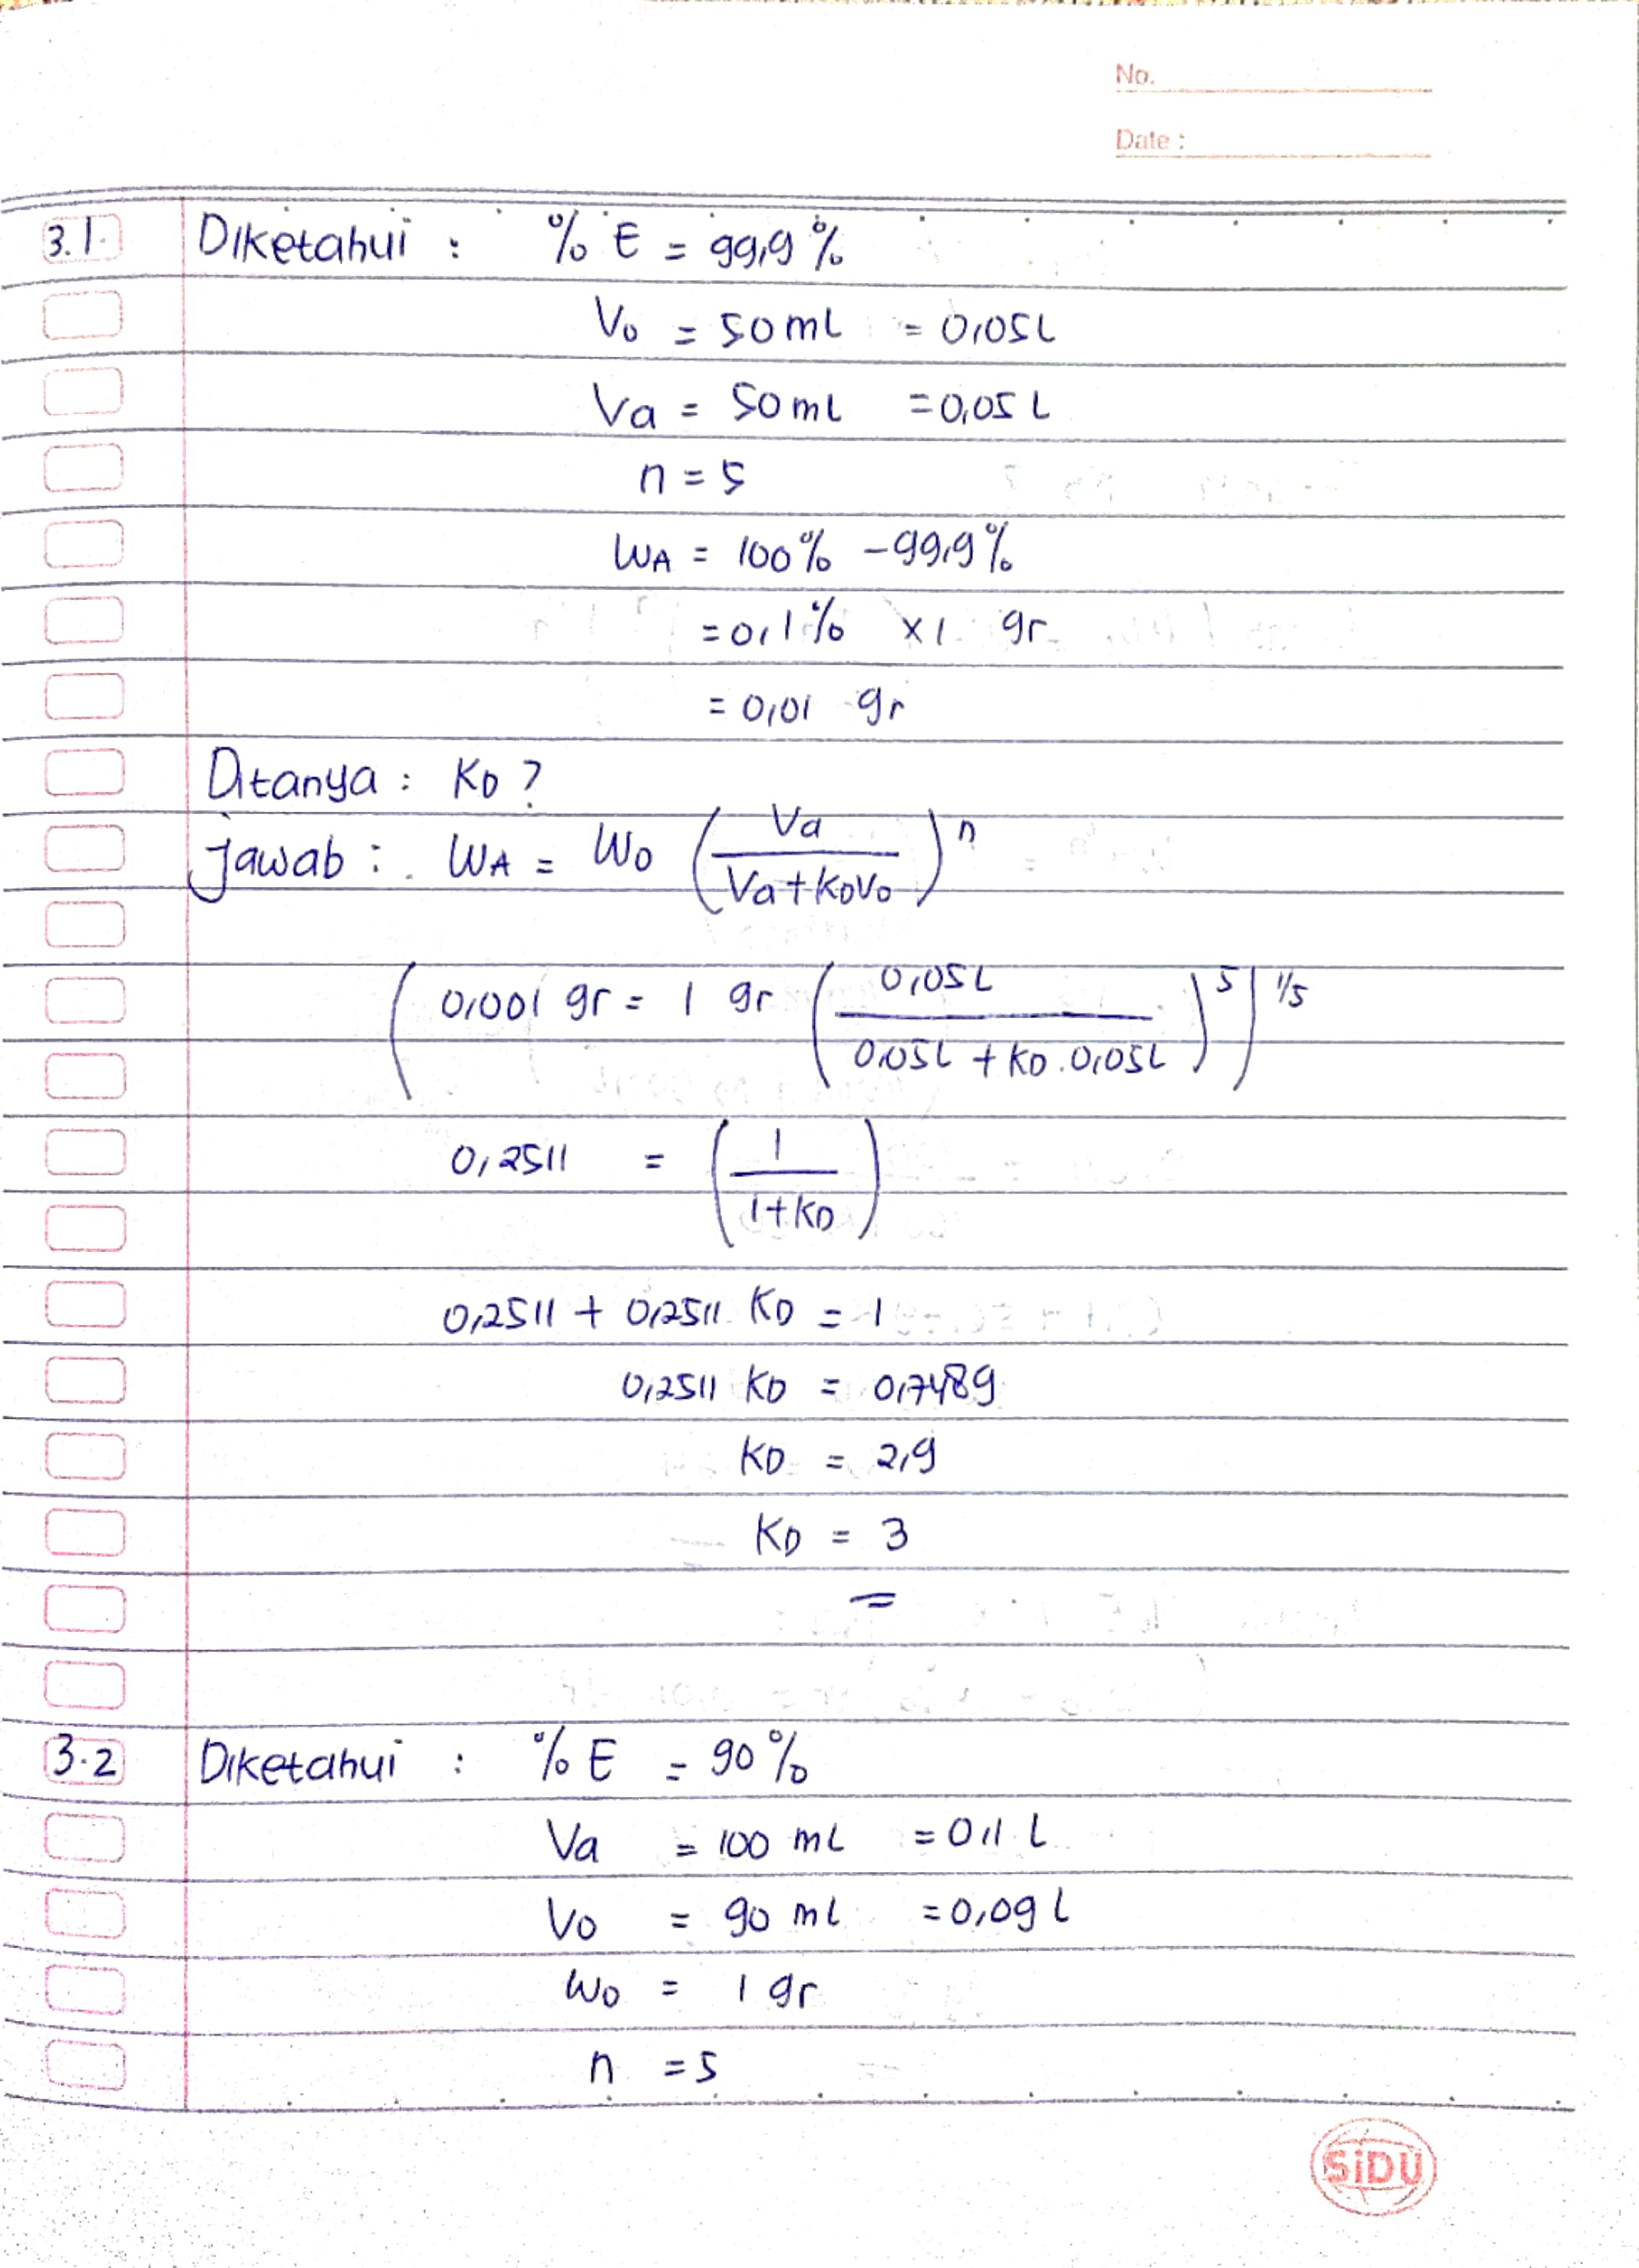 No.
Date :
3.1. Diketahui : % E = 99,9 %
Vo = 50 mL = 0,05L
Va = 50 mL = 0,05 L
n = 5
WA = 100% - 99,9%
= 0,1% x 1 gr
= 0,01 gr
Ditanya : KD ?
jawab : WA = Wo (Va / Va + KDVo)^n
(0,001 gr = 1 gr (0,05L / 0,05L + KD . 0,05L)^5)^1/5
0,2511 = (1 / 1 + KD)
0,2511 + 0,2511 KD = 1
0,2511 KD = 0,7489
KD = 2,9
KD = 3
=
3.2 Diketahui : % E = 90 %
Va = 100 mL = 0,1 L
Vo = 90 mL = 0,09 L
Wo = 1 gr
n = 5
SiDU